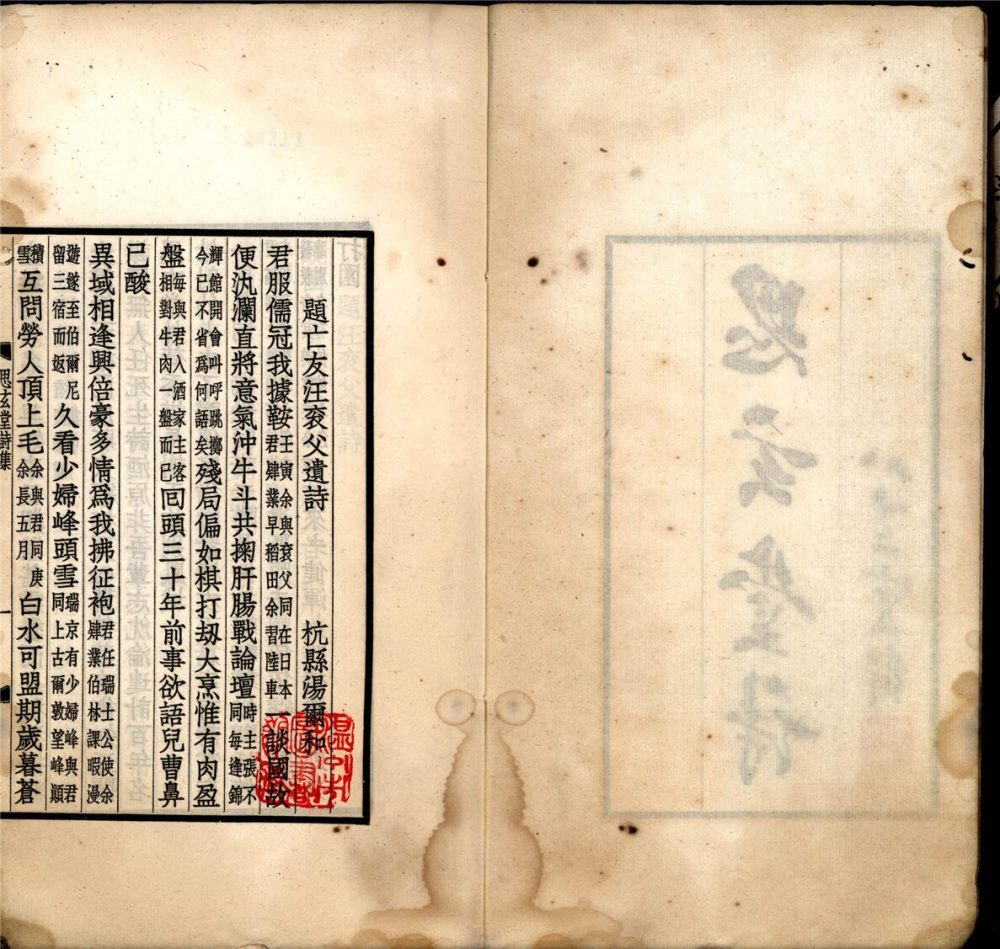 題亡友汪袞父遺詩　杭縣湯爾和
君服儒冠我據鞍壬寅余與袞父同在日本君肄業早稻田余習陸車一談國故
便汍瀾直將意氣沖牛斗共掬肝腸戰論壇時主張不同每逢錦
輝館開會叫呼跳擲今已不省爲何語矣殘局偏如棋打劫大烹惟有肉盈
盤每與君入酒家主客相對牛肉一盤而已回頭三十年前事欲語兒曹鼻
已酸
異域相逢興倍豪多情爲我拂征袍君任瑞士公使余肄業伯林課暇漫
遊遂至伯爾尼留三宿而返久看少婦峰頭雪瑞京有少婦峰與君同上古爾敦望峰顛
積雪互問勞人頂上毛余與君同庚余長五月白水可盟期歲暮蒼
思玄堂詩集
一